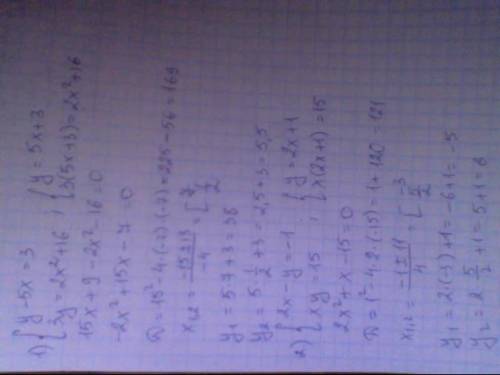 1) { y - 5x = 3 ; { y = 5x + 3
{ 3y = 2x² + 16 ; { 3(5x + 3) = 2x² + 16
15x + 9 - 2x² - 16 = 0
-2x² + 15x - 7 = 0
D = 15² - 4·(-2)·(-7) = 225 - 56 = 169
x₁,₂ = (-15 ± 13)/-4 = [ 7 ; 1/2
y₁ = 5·7 + 3 = 38
y₂ = 5·1/2 + 3 = 2,5 + 3 = 5,5
2) { 2x - y = -1 ; { y = 2x + 1
{ xy = 15 ; { x(2x + 1) = 15
2x² + x - 15 = 0
D = 1² - 4·2·(-15) = 1 + 120 = 121
x₁,₂ = (-1 ± 11)/4 = [ -3 ; 5/2
y₁ = 2·(-3) + 1 = -6 + 1 = -5
y₂ = 2·5/2 + 1 = 5 + 1 = 6